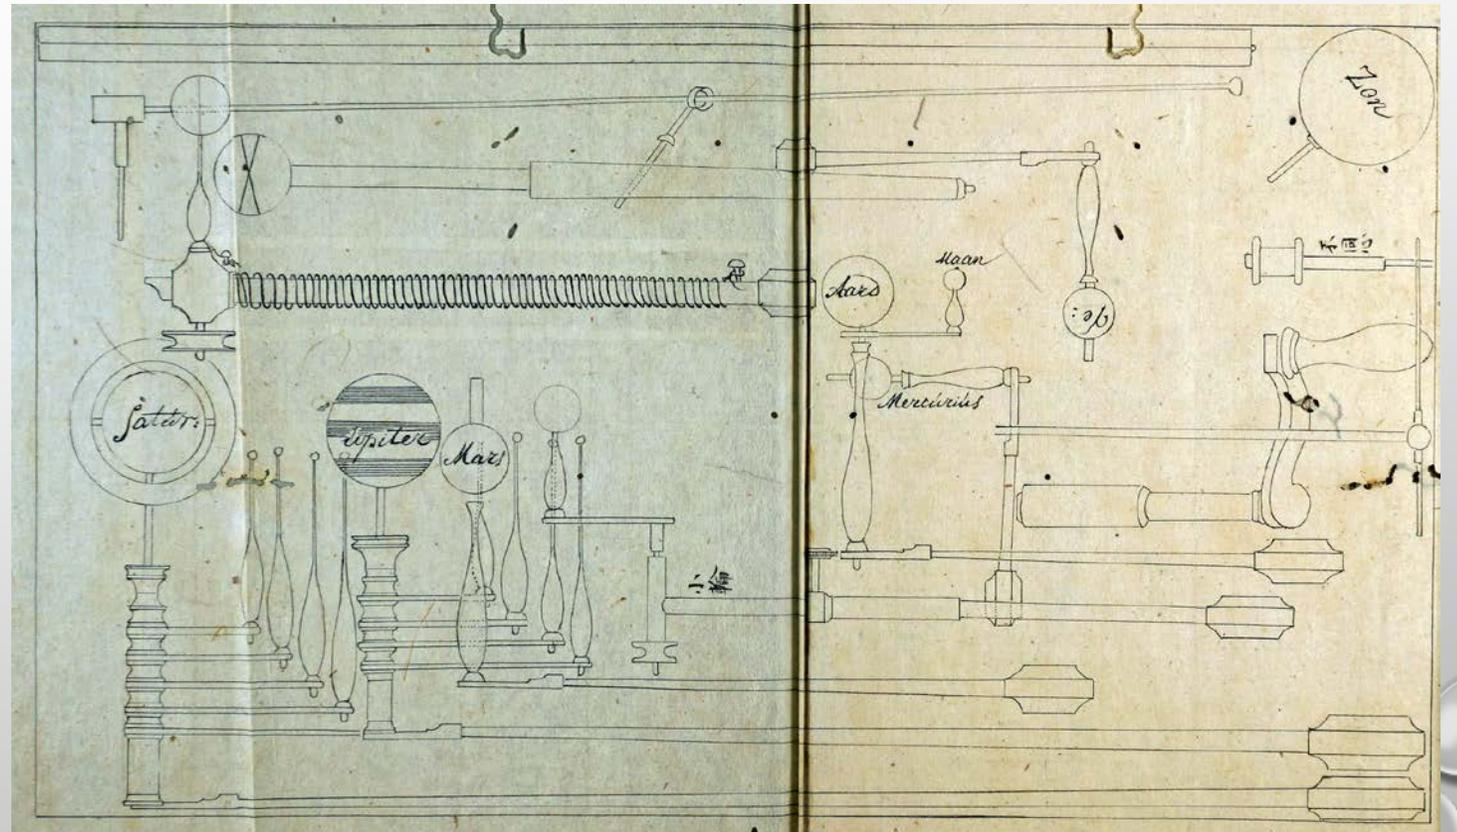 Zon
Maan
Aard
Ve:
Mercurius
Satur:
Iupiter
Mars
二輪